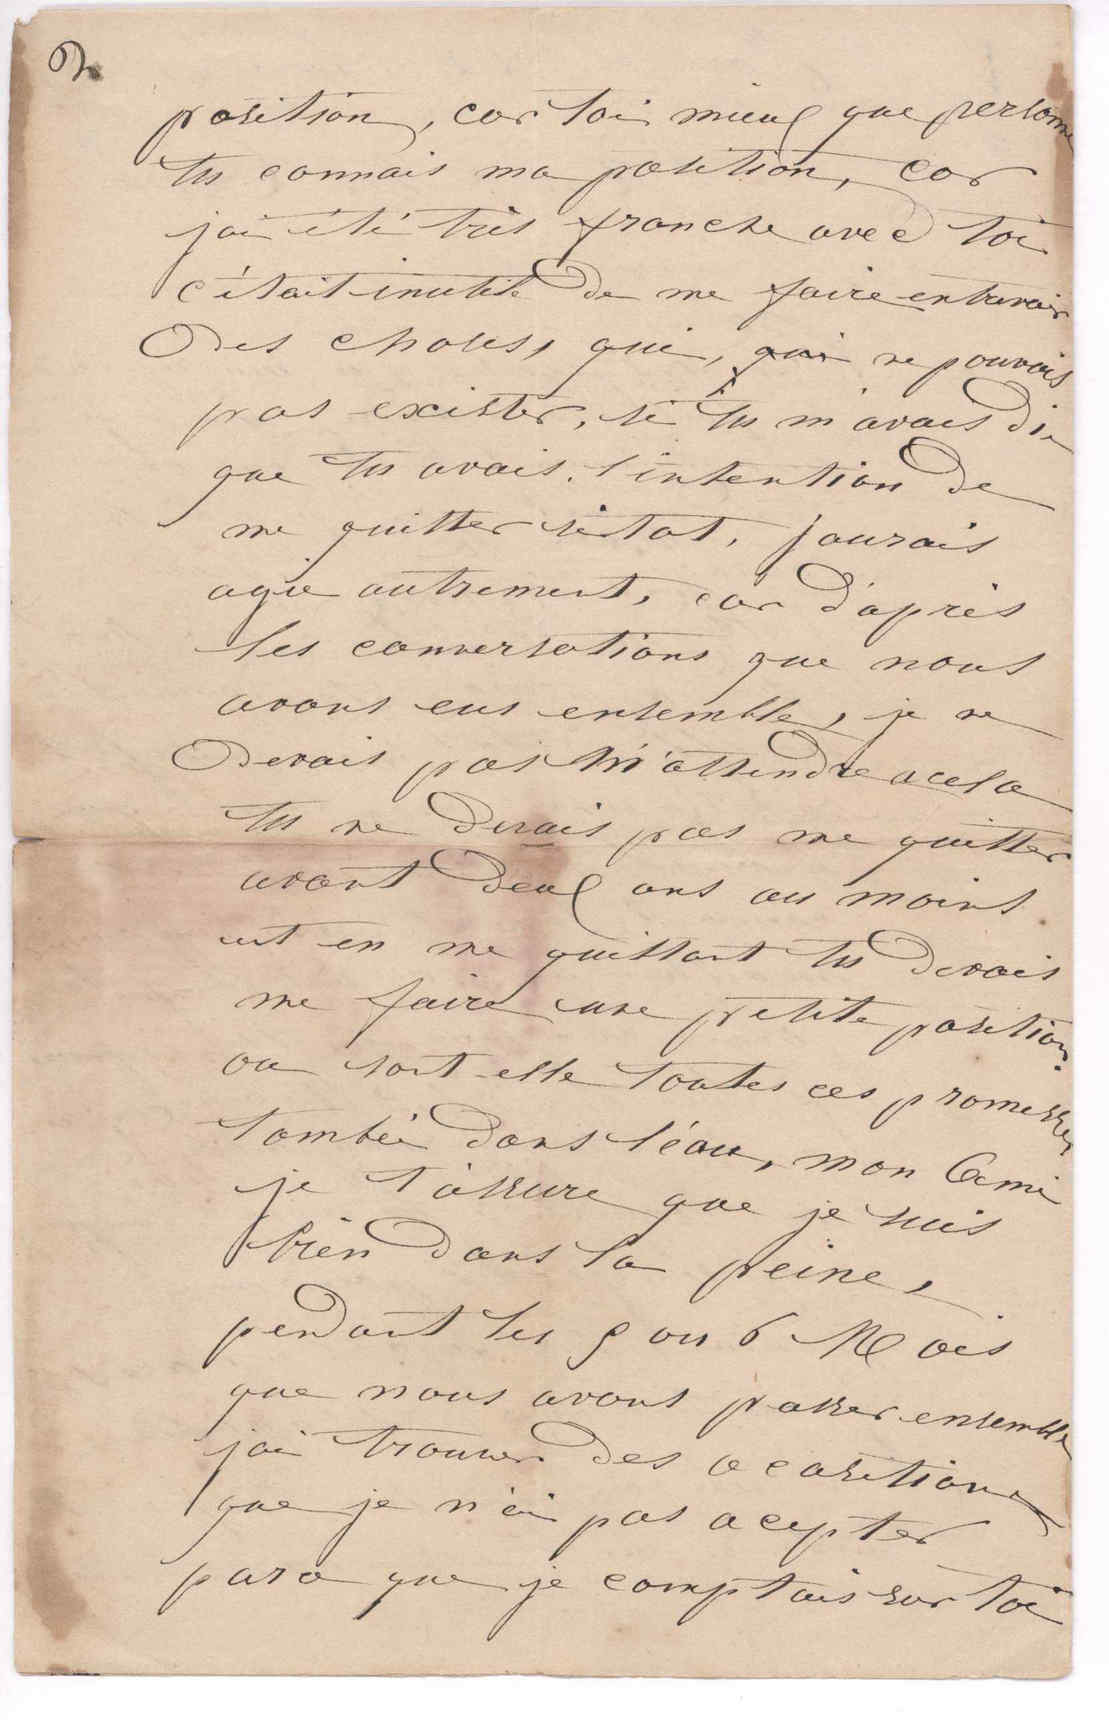 2
position, car toi mieux que personne
tu connais ma position, car
jai été très franche avec toi
c'était inutile de me faire entrevoir
des choses, qui, qui ne pouvais
pas exister, si tu m'avais die
que tu avais l'intention de
me quitter sitot, jaurais
agie autrement, car d'après
les conversations que nous
avons eus ensemble, je ne
devais pas m'attendre a cela
tu ne devais pas me quitter
avant deux ans au moins
et en me quittant tu devais
me faire une petite position
ou sont elle toutes ces promesses
tombée dans l'éau, mon Ami
je t'assure que je suis
bien dans la peine,
pendant les 5 ou 6 Mois
que nous avons passer ensemble
jai trouver des ocasitions
que je n'ai pas acepter
parce que je comptais sur toi